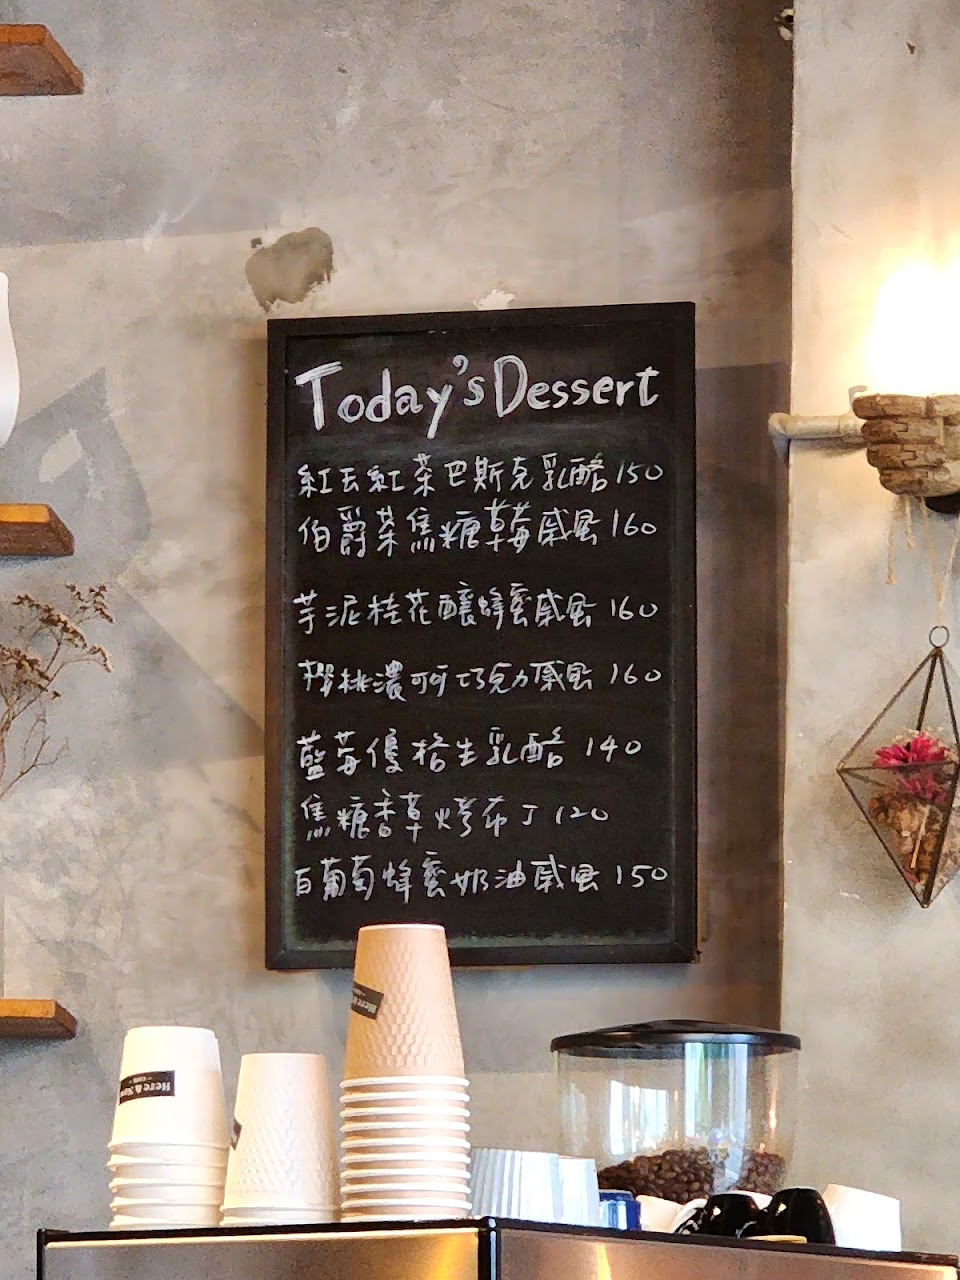 Today's Dessert
紅玉紅茶巴斯克乳酪 150
伯爵茶焦糖草莓戚風 160
芋泥桂花釀蜂蜜戚風 160
櫻桃濃可可巧克力戚風 160
藍莓優格生乳酪 140
焦糖香草烤布丁 120
白葡萄蜂蜜奶油戚風 150